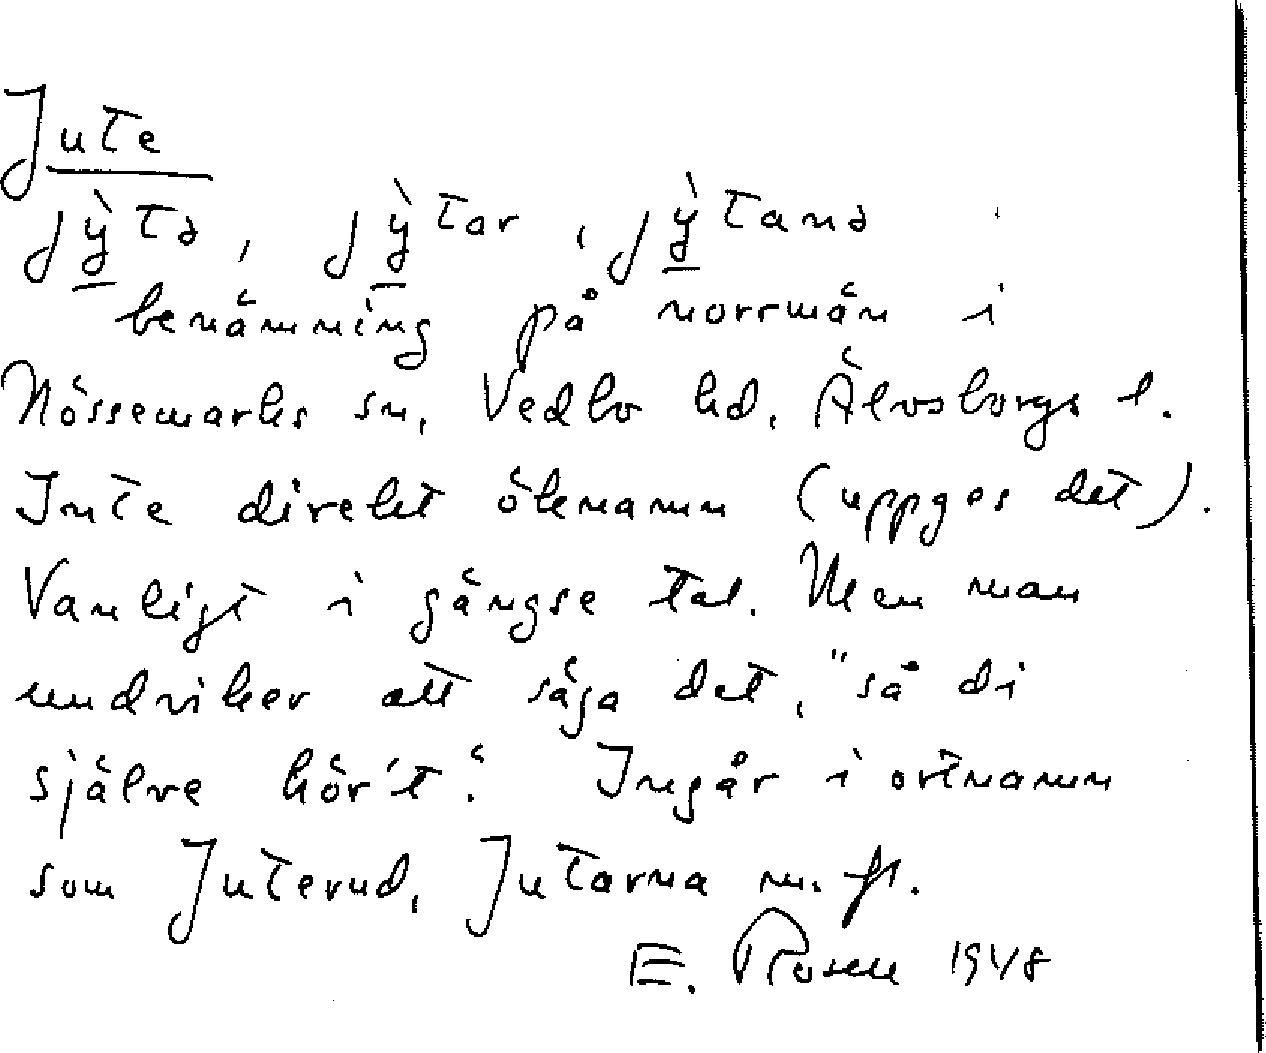 Jute
jỳ̠tə, jỳ̠tar, jỳ̠tanə
benämning på norrmän i
Nössemarks sn, Vedbo hd, Älvsborgs l.
Inte direkt öknamn (uppges det).
Vanligt i gängse tal. Men man
undviker att säga det, "så di
själve hör't". Ingår i ortnamn
som Juterud, Jutarna m. fl.
E. Rosell 1948